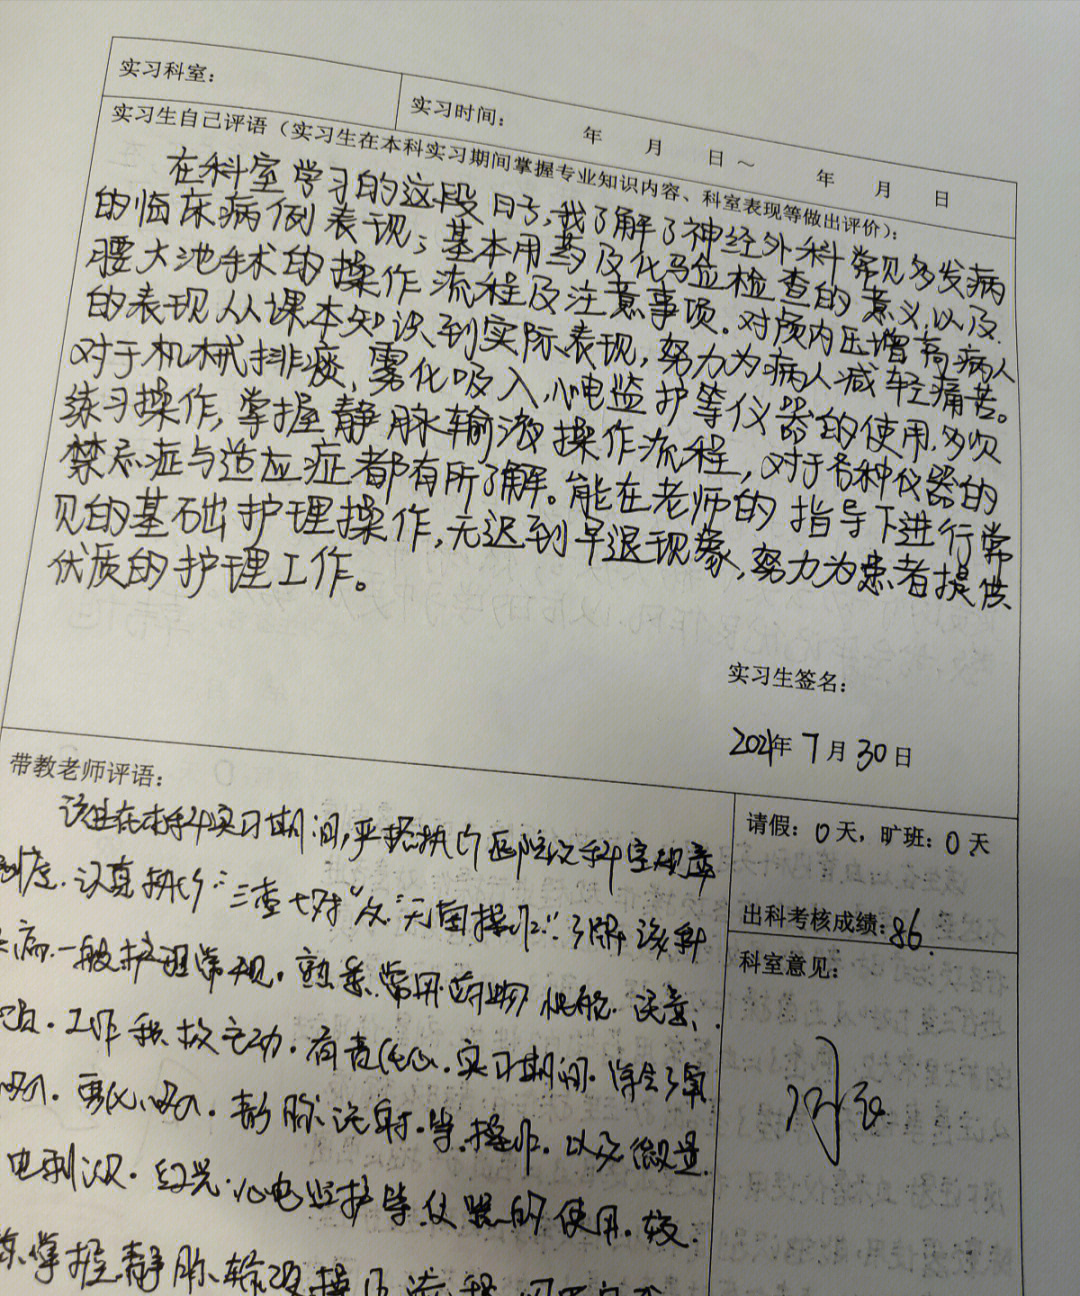 实习科室：
实习时间： 年 月 日～ 年 月 日
实习生自己评语（实习生在本科实习期间掌握专业知识内容、科室表现等做出评价）：
在科室学习的这段日子，我了解了神经外科常见多发病
的临床病例表现；基本用药及化验检查的意义，以及
腰大池手术的操作流程及注意事项。对颅内压增高病人
的表现从课本知识到实际表现，努力为病人减轻痛苦。
对于机械排痰，雾化吸入，心电监护等仪器的使用，多次
练习操作，掌握静脉输液操作流程，对于各种仪器的
禁忌症与适应症都有所了解。能在老师的指导下进行常
见的基础护理操作，无迟到早退现象，努力为患者提供
优质的护理工作。
实习生签名：
2021年 7月 30日
带教老师评语：
该生在本科实习期间，严格执行医院及科室规章
制度．认真执行“三查七对”及“无菌操作”．了解该科
疾病一般护理常规．熟悉常用药物性能．注意
事项．工作积极主动．有责任心．实习期间．学会了氧
吸入．雾化吸入．静脉注射．等操作．以及微量
电刺激．红光．心电监护等仪器的使用．较
掌握静脉输液操作流程
请假：0天，旷班：0天
出科考核成绩：86.
科室意见：